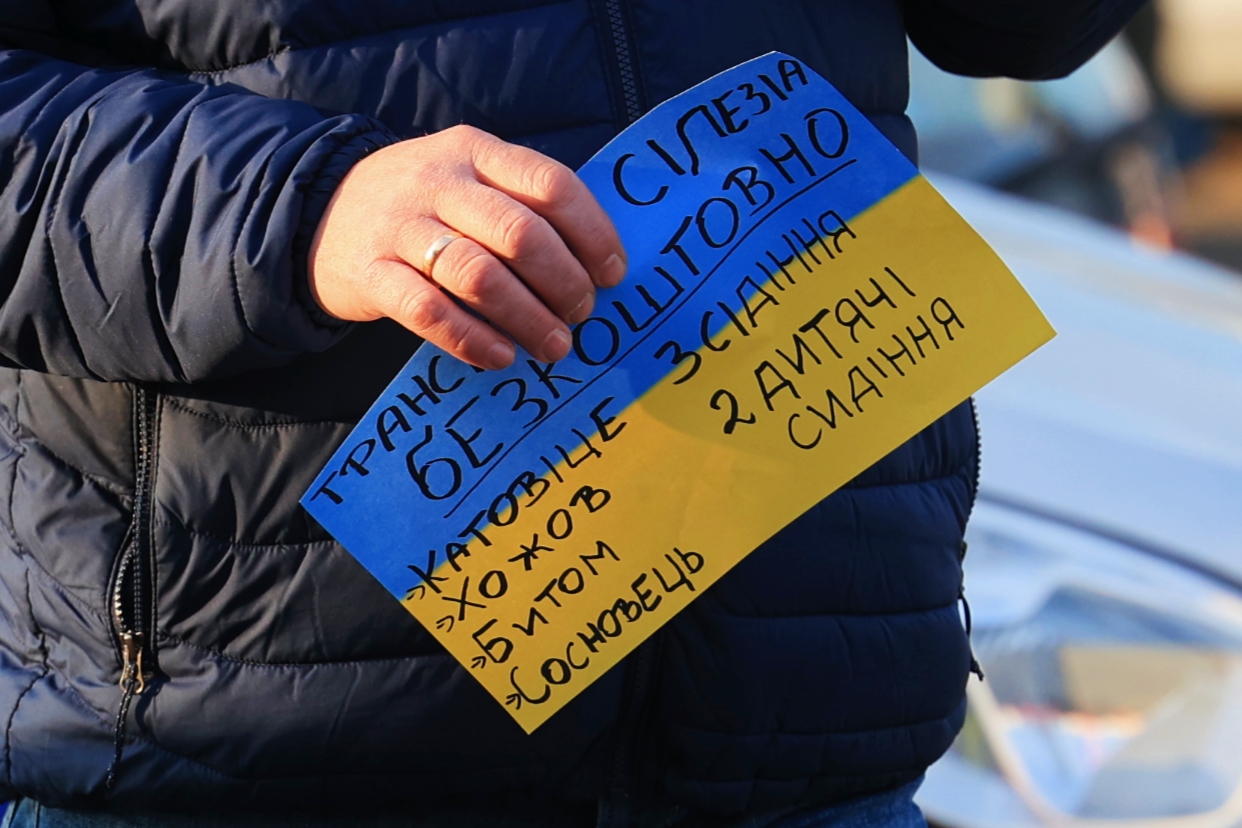 ТРАНС СІЛЕЗІА
БЕЗКОШТОВНО
»КАТОВІЦЕ
»ХОЖОВ
»БИТОМ
»СОСНОВЕЦЬ
3 СІДІННЯ
2 ДИТЯЧІ
СИДІННЯ